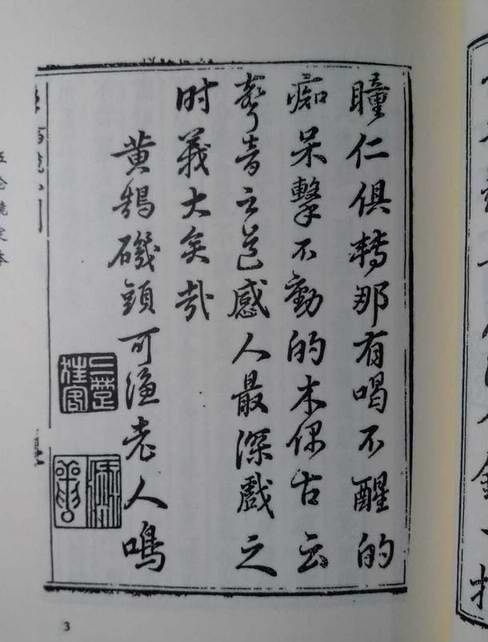 瞳仁俱轉那有喝不醒的
痴呆擊不動的木偶古云
聲音之道感人最深戲之
时義大矣哉
黄鵠磯頭可漁老人鳴
3